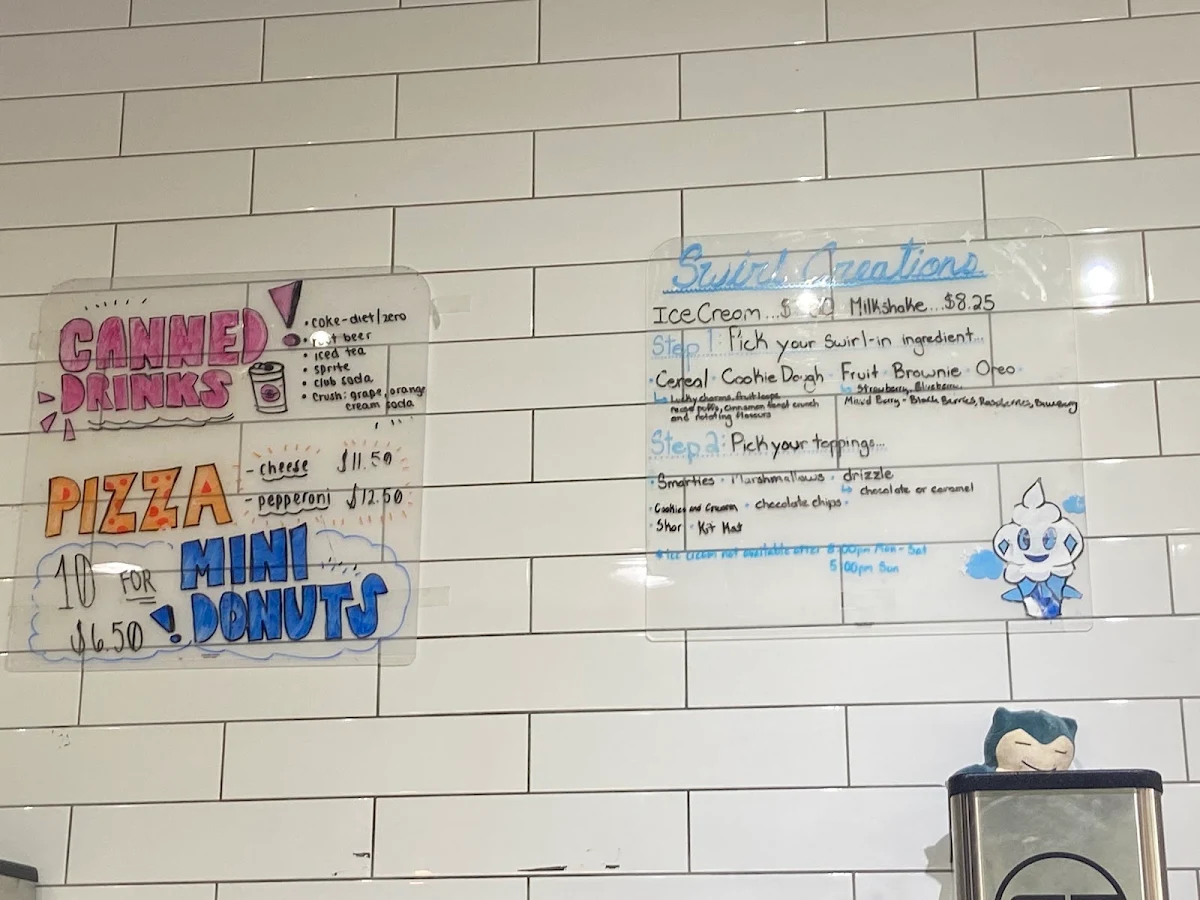 CANNED
DRINKS
• coke-diet/zero
• beer
• iced tea
• sprite
• club soda
• crush: grape, orange
cream soda
PIZZA
- cheese $11.50
- pepperoni $12.50
10 FOR
$6.50
MINI
DONUTS
Swirl Creations
Ice Cream...$ Milkshake...$8.25
Step 1: Pick your swirl-in ingredient...
• Cereal • Cookie Dough • Fruit • Brownie • Oreo
Lucky charms, fruit loops,
reese puffs, cinnamon toast crunch
and rotating flavours
Strawberry, Blueberry,
Mixed Berry - Black Berries, Raspberries, Blueberry
Step 2: Pick your toppings...
• Smarties • Marshmallows • drizzle
chocolate or caramel
• Cookies and Cream • chocolate chips •
• Skor • Kit Kat
* ice cream not available after 8:00pm Mon - Sat
5:00pm Sun